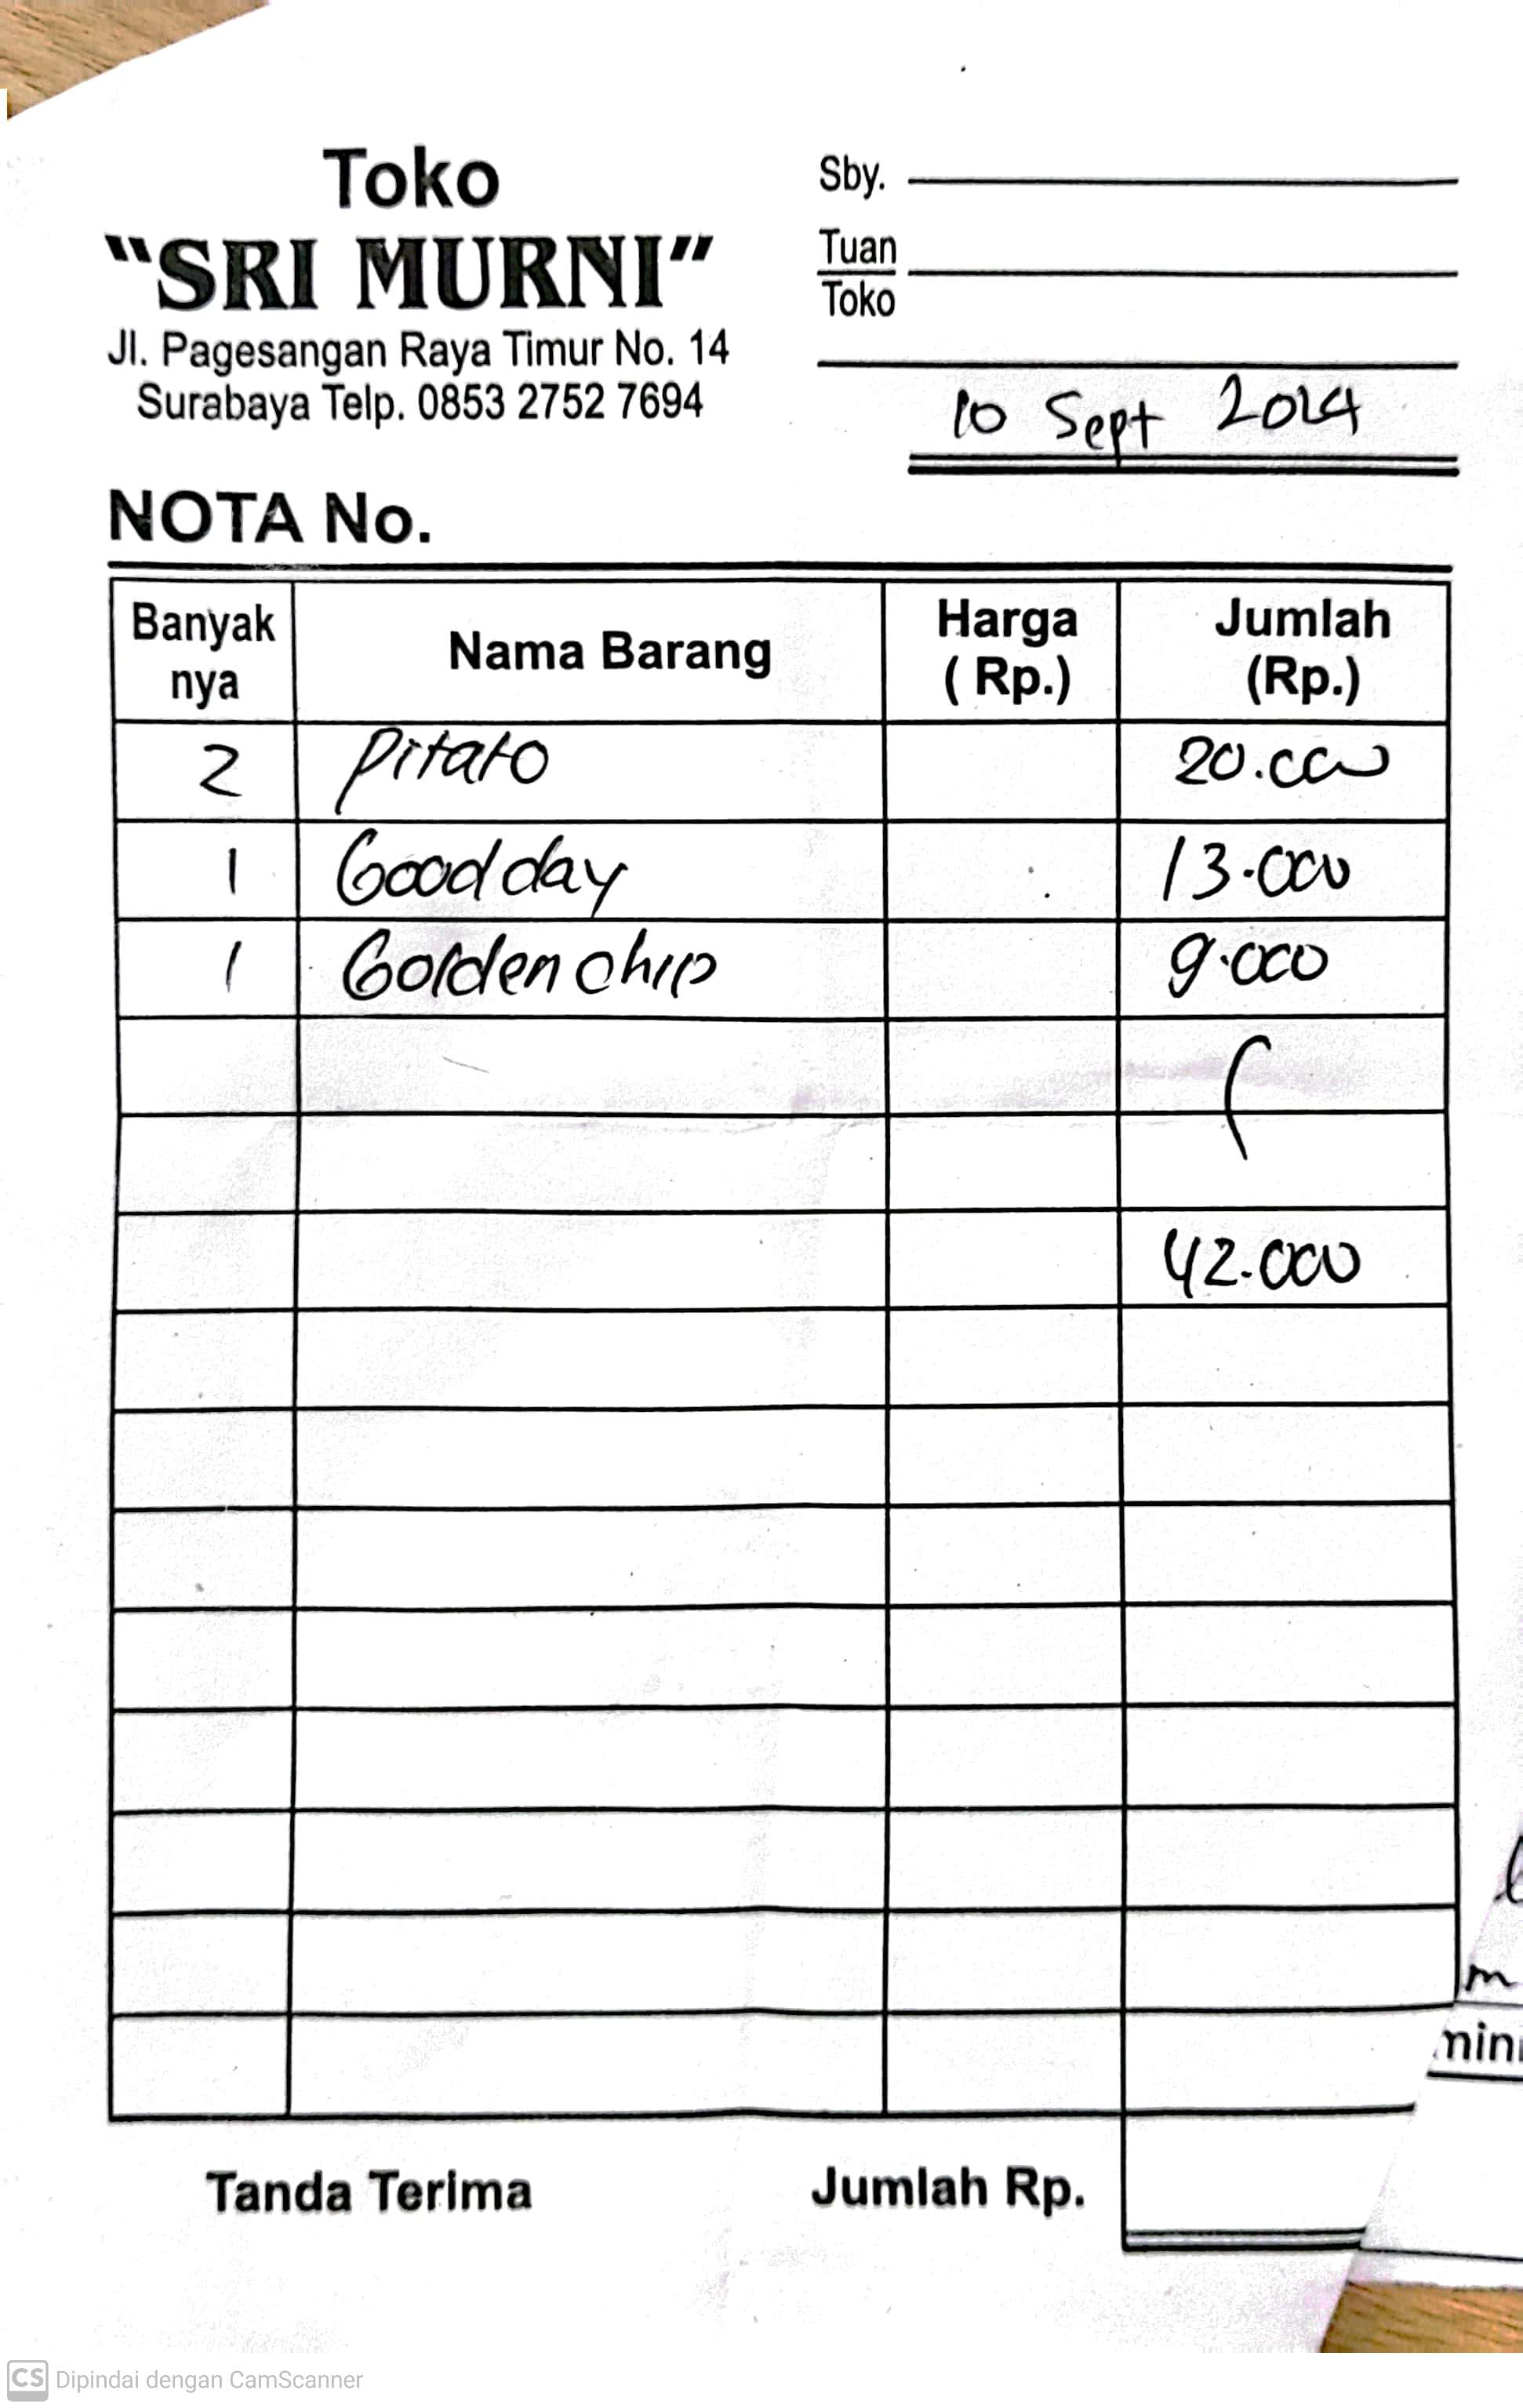 Toko
"SRI MURNI"
Jl. Pagesangan Raya Timur No. 14
Surabaya Telp. 0853 2752 7694
Sby.
Tuan
Toko
10 Sept 2024
NOTA No.
Banyak nya Nama Barang Harga ( Rp.) Jumlah (Rp.)
2 Pitato 20.000
1 Good day 13.000
1 Golden chip 9.000
42.000
Tanda Terima Jumlah Rp.
CS Dipindai dengan CamScanner